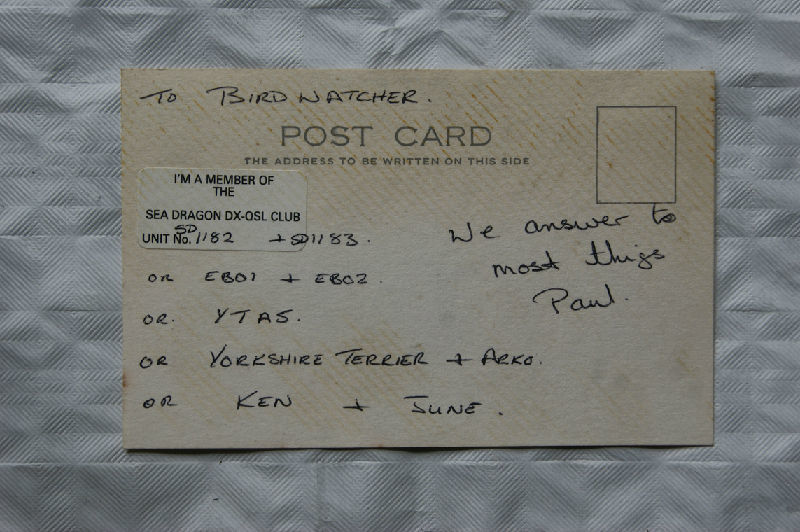 TO BIRD WATCHER.
POST CARD
THE ADDRESS TO BE WRITTEN ON THIS SIDE
I'M A MEMBER OF
THE
SEA DRAGON DX-QSL CLUB
UNIT No. SD 1182 + SD1183.
OR EB01 + EB02.
OR. YTAS.
OR YORKSHIRE TERRIER + ARKO.
OR KEN + JUNE.
We answer to
most thigs
Paul.